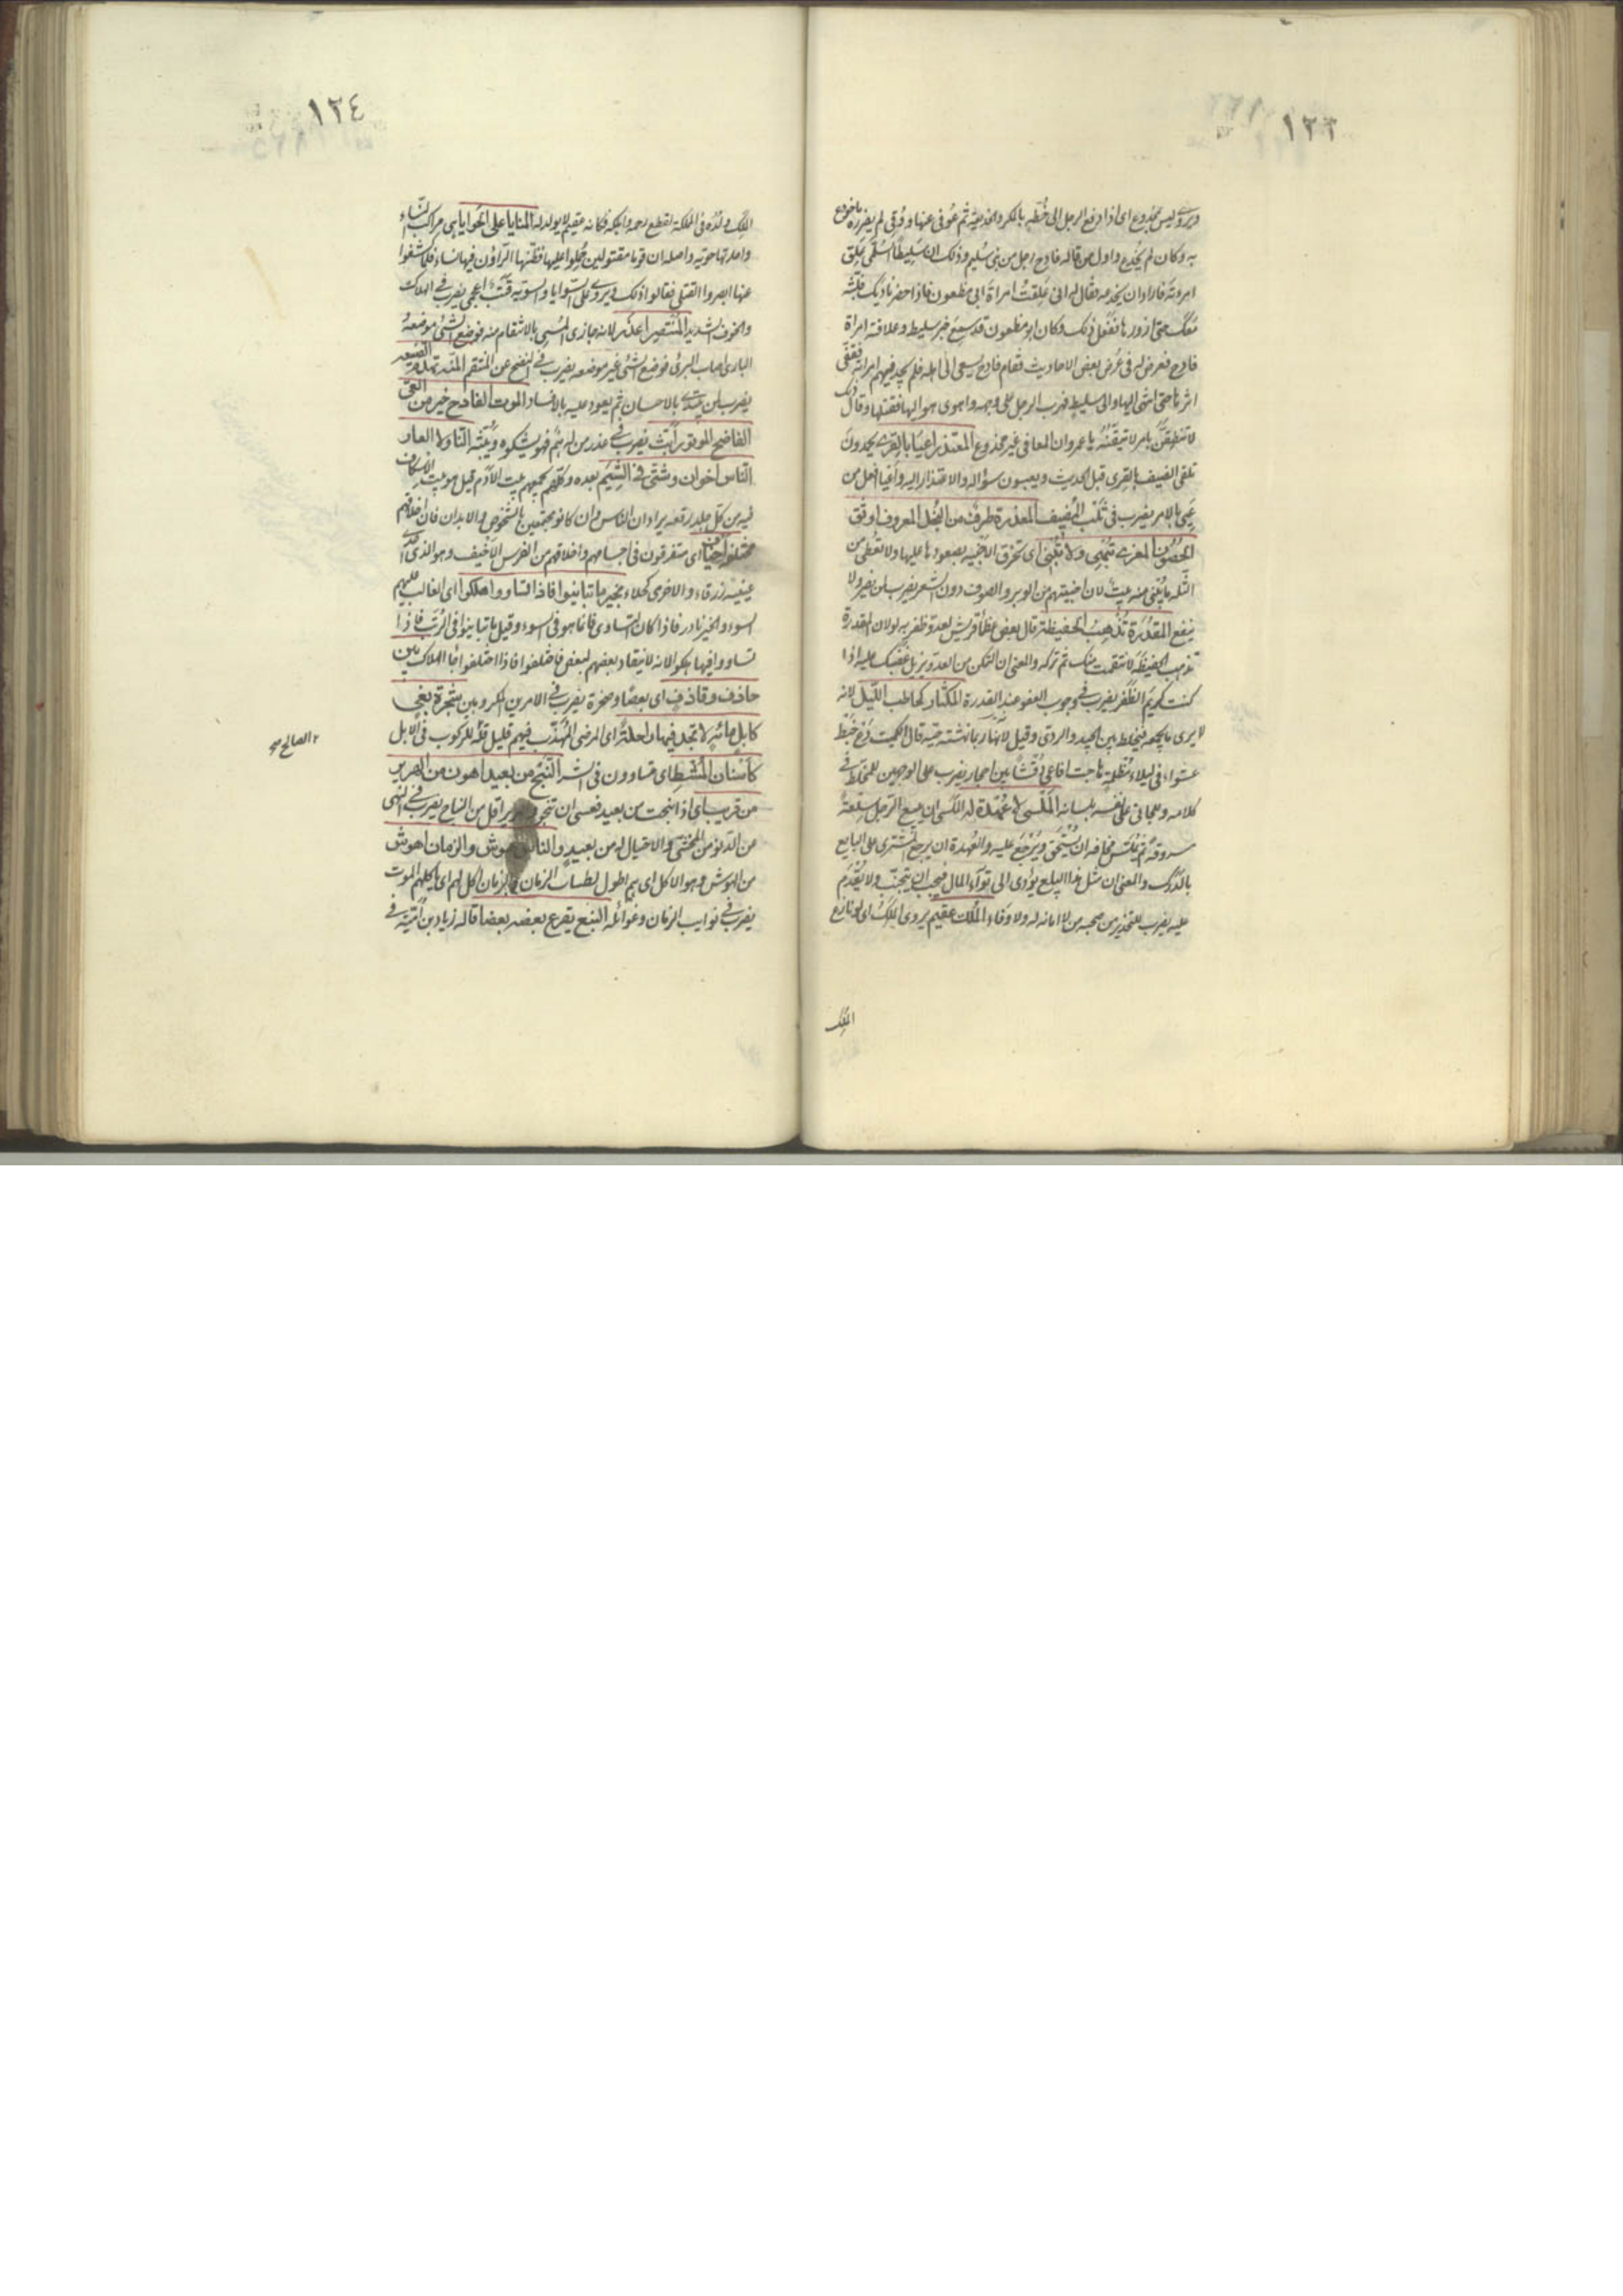 ١٢٣
ويروى ليس بمخدوع اى اذا دفع الرجل الى خُطّة بالمكر والخديعة ثم عُوفى عنها ووُقى لم يضرره ما خودع
به وكان لم يُخدع واول من قاله فادح رجل من بنى سُليم وذلك ان سَليطًا السُلَمى عَلِق
امرءته فاراد ان يخدعه فقال له انى عَلِقتُ امراة ابى مظعون فاذا حضر ناديك فلبّثه
معك حتى ازورها ففعل ذلك وكان ابو مظعون قد سمع خبر سليط وعلاقته امراة
فادح فعرض له فى عُرض بعض الاحاديث فقام فادح يسعى الى اهله فلم يجد فيهم امراته فقفى
اثرها حتى انتهى اليها والى سليط فهرب الرجل على وجهه واهوى هو اليها فقتلها وقال ذلك
لا تنطقنَّ بامر لا تيقّنُهُ يا عمرو ان المعافى غير مخدوع المعتذر اعيا بالقرى يحمدون
تلقى الضيف بالقرى قبل الحديث ويعيبون سؤاله والاعتذار اليه واعيا افعل من
عَيِى بالامر يضرب فى ثَلب المُضيف المعذرة طرف من البخل المعروف اوثق
الحصون المعزى تُبهى ولا تُبنى اى تخرق الاخبية بصعودها عليها ولا تُعطى من
الثلة ما يُبنى منه بيت لان اخبيتهم من الوبر والصوف دون الشعر يضرب لمن يضر ولا
ينفع المقدرة تُذهب الحفيظة قال بعض عظماء قريش لعدو ظفر به لولا ان المقدرة
تذهب الحفيظة لانتقمت منك ثم تركه والمعنى ان التمكن من العدو يزيل غضبك عليه اذا
كنت كريم الظفر يضرب فى وجوب العفو عند القدرة المكثار كحاطب الليل لانه
لا يرى ما يجمعه فيخلط بين الجيد والردى وقيل لانه ربما نهشته حيّة قال الكميت
عشواء فى ليلاء مُظلمة هاجت افاعى رُقشًا بين احجار يضرب على الوجهين للمخلط فى
كلامه والجانى على نفسه بلسانه المَلَسى لا عُهدة له الملسى ان يبيع الرجل سلعة
سروقة ثم يَملَس مخافة ان يُستَحق ويُرجَع عليه والعُهدة ان يرجع المشترى على البايع
بالدَرَك والمعنى ان مثل هذا البيع يؤدى الى تواء المال فيجب ان يتجنّب ولا يُقدَم
عليه يضرب للتحذير من صحبة من لا امانة له ولا وفاء المُلك عقيم يروى المَلِكُ اى لو نازع
الملك
١٢٤
الملك ولدُه فى المملكة لقطع رحمه واهلكه فكانه عقيم لا يولد له المنايا على الحوايا هى مراكب النساء
واحدتها حوية واصله ان قوما مقتولين حُملوا عليها فظنّها الراؤن فيها نساء فلما كشفوا
عنها ابصروا القتلى فقالوا ذلك ويروى على السوايا والسوية قتب اعجمى يضرب فى الهلاك
والخوف الشديد المنتصر اعذر لانه جازى المسى بالانتقام منه فوضع الشئ موضعه
البادى اصاب البرئ فوضع الشئ غير موضعه يضرب فى النضح عن المنتقم
يضرب لمن يبتدى بالاحسان ثم يعود عليه بالافساد الموت الفادح خير من العى
الفاضح الموتور ابثّ يضرب فى عذر من له همّ فهو يشكوه ويبثّه النار ولا العار
الناس اخوان وشتى فى الشيم بعده وكلهم يجمعهم بيت الادم قيل هو بيت الاسكاف
فيه من كل جلد رقعة يراد ان الناس وان كانو مجتمعين بالشخوص والابدان فان اخلاقهم
مختلفة اخياف اى متفرقون فى اجسامهم واخلاقهم من الفرس الاخيف وهو الذى احدى
عينيه زرقاء والاخرى كحلاء بخير ما تباينوا فاذا تساووا هلكوا اى الغالب عليهم
السوء والخير نادر فاذا كان التساوى فانما هو فى السوء وقيل ما تباينوا فى الرتب فاذا
تساووا فيها هلكوا لانه لا ينقاد بعضهم لبعض فاختلفوا فاذا اختلفوا فالهلاك بين
حاذف وقاذف اى بعصًا وصخرة يضرب فى الامرين المكروهين شجرة بغى
كابل مائة لا تجد فيها راحلة اى المرضى المهذّب فيهم قليل قلة للركوب فى الابل
٢ الصالح صح
كاسنان المشط اى متساوون فى الشر النبح من بعيد اهون من الهرير
من قريب اى اذا نبحت من بعيد فعسى ان تنجو والهرير اقل من النباح يضرب فى النهى
من الدنو من المخشى والاحتيال له من بعيد والناس هوش والزمان اهوش
من الهوش وهو الاكل اى هم اطول لطساب الزمان والزمان اكل لهم اى ياكلهم الموت
يضرب فى نوايب الزمان وغوائله النبع يقرع بعضه بعضا قاله زياد بن اميّة فى